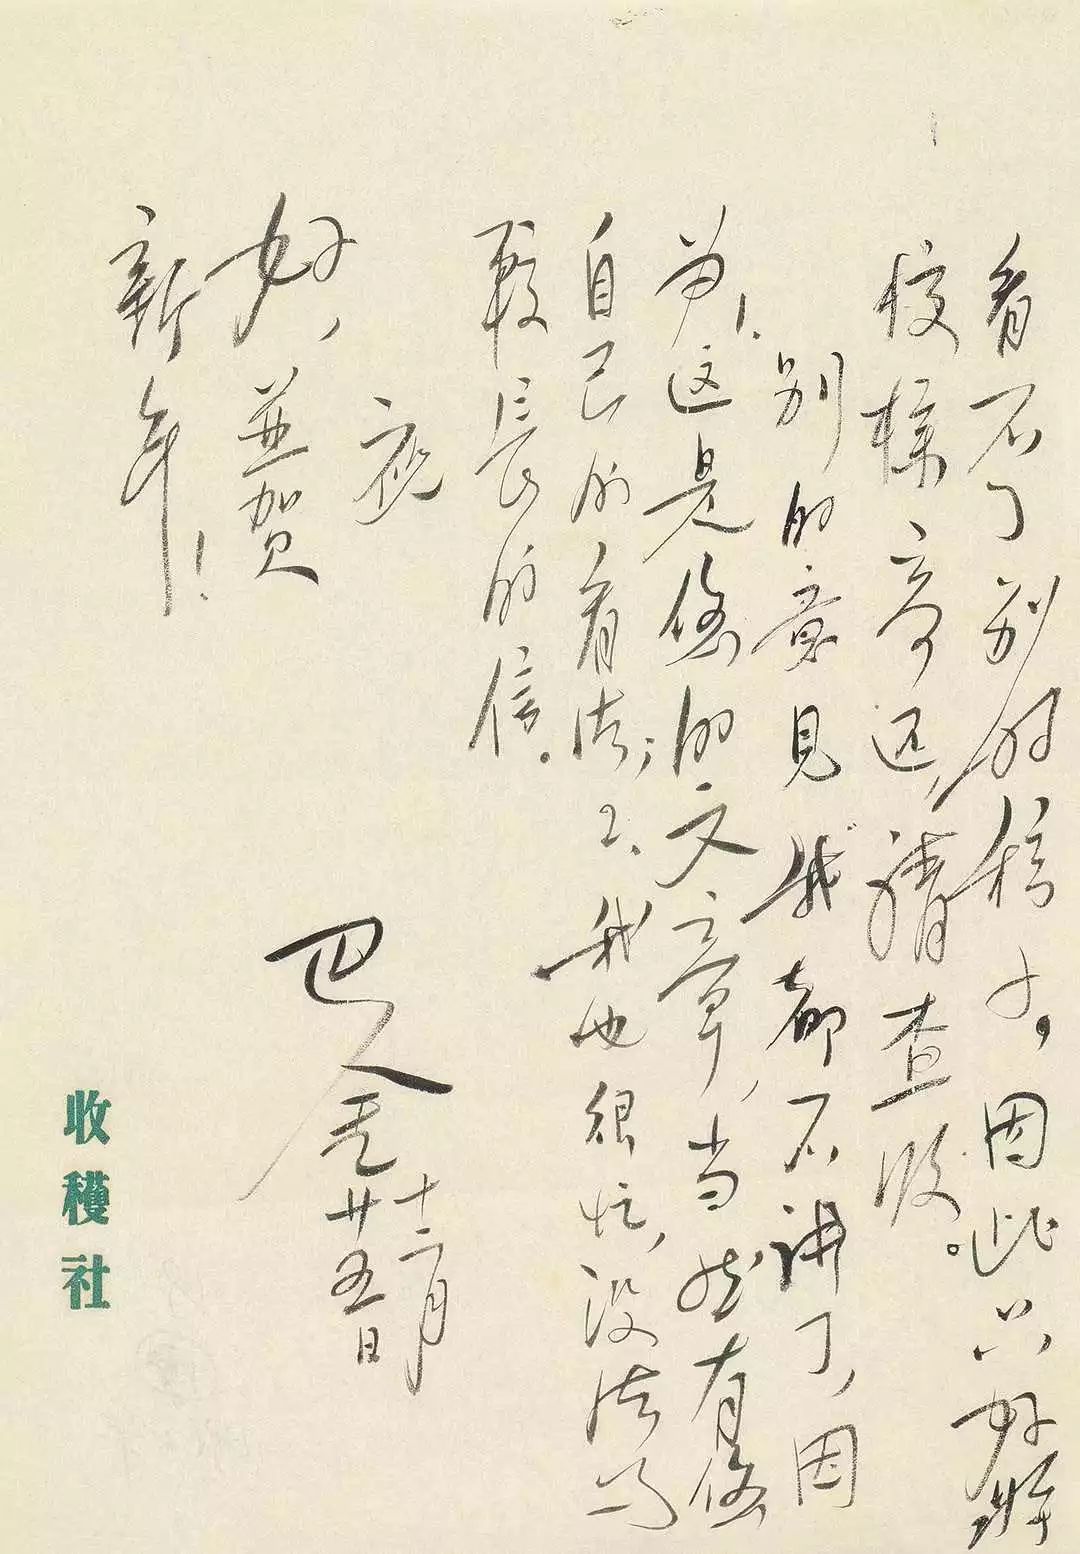 看不了别的稿子。因此只好将
校样寄还，请查收。
别的意见我都不讲了，因
为1.这是您的文章，当然有您
自己的看法；2、我也很忙，没法写
较长的信。
祝
好，並贺
新年！
巴金
十二月
廿五日
收穫社